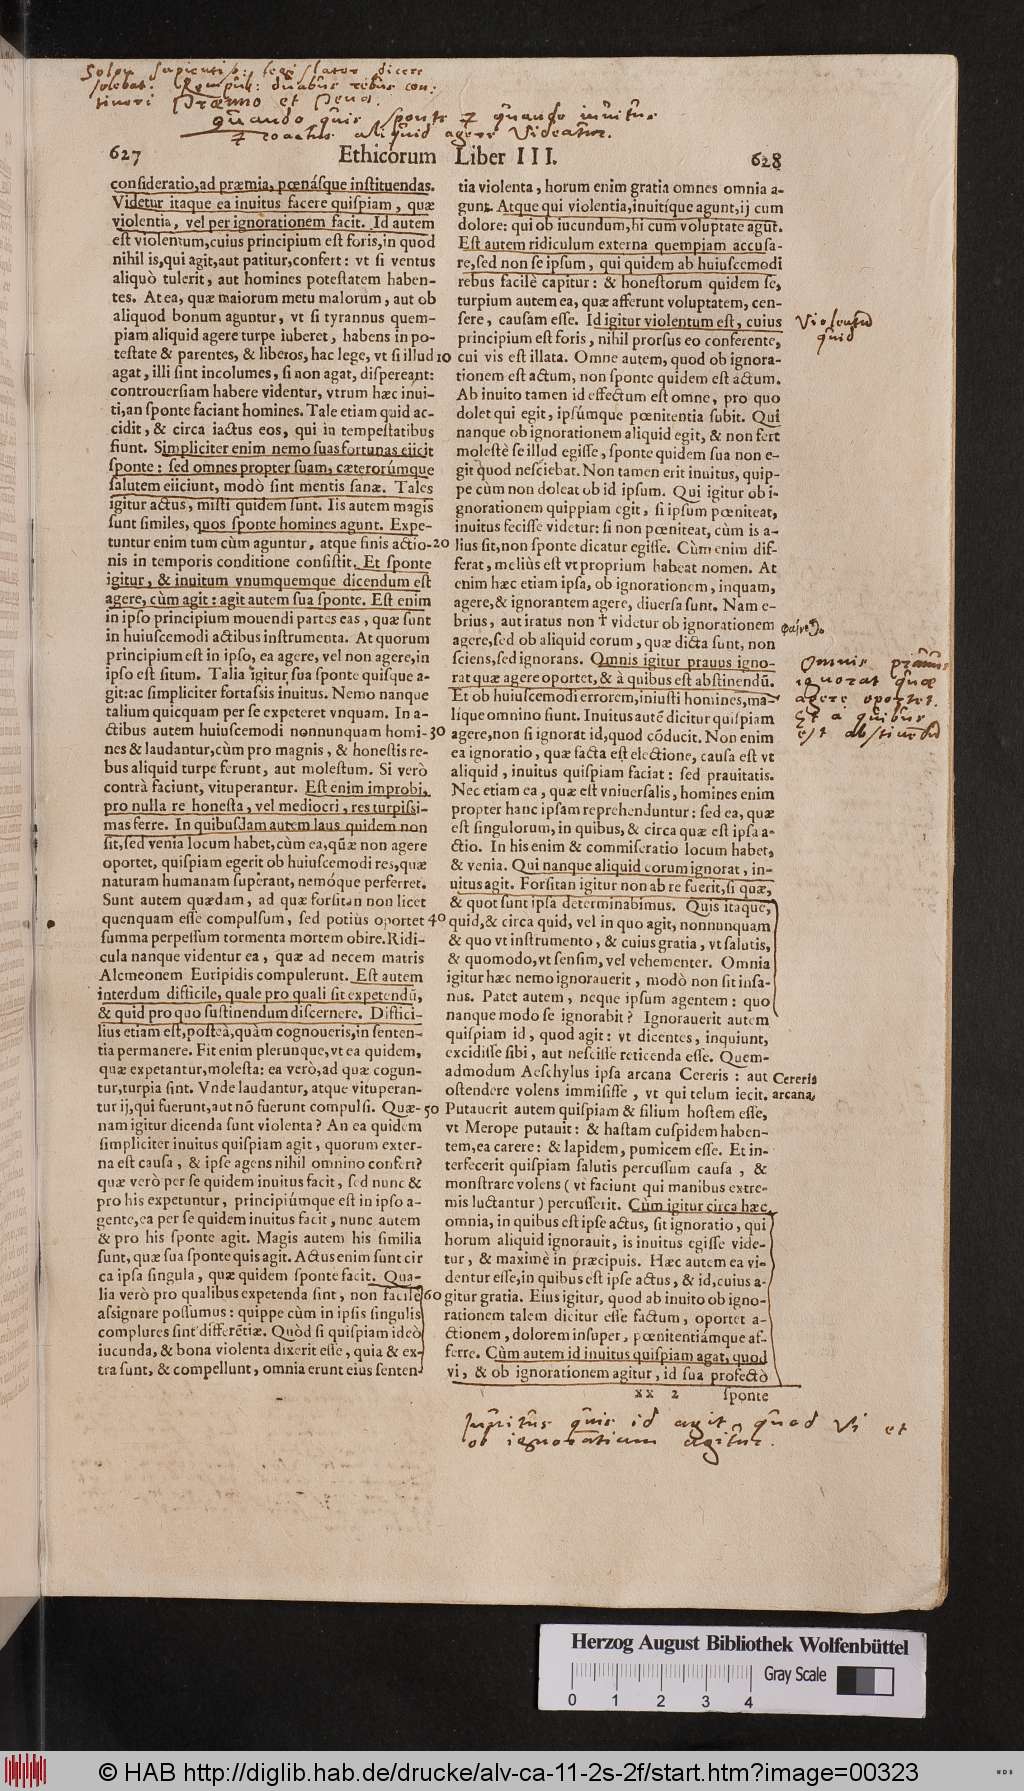 Solon sapientiss: legislator dicere
solebat: Rempub: duabus rebus con:
tineri Præmio et Pena.
Quando quis sponte & quando invitus
& coactus aliquid agere Videatur.
627 Ethicorum Liber III. 628
consideratio, ad præmia, pœnásque instituendas.
Videtur itaque ea inuitus facere quispiam, quæ
violentia, vel per ignorationem facit. Id autem
est violentum, cuius principium est foris, in quod
nihil is, qui agit, aut patitur, confert: vt si ventus
aliquò tulerit, aut homines potestatem haben-
tes. At ea, quæ maiorum metu malorum, aut ob
aliquod bonum aguntur, vt si tyrannus quem-
piam aliquid agere turpe iuberet, habens in po-
testate & parentes, & liberos, hac lege, vt si illud 10
agat, illi sint incolumes, si non agat, dispereant:
controuersiam habere videntur, vtrum hæc inui-
ti, an sponte faciant homines. Tale etiam quid ac-
cidit, & circa iactus eos, qui in tempestatibus
fiunt. Simpliciter enim nemo suas fortunas eiicit
sponte: sed omnes propter suam, cæterorúmque
salutem eiiciunt, modò sint mentis sanæ. Tales
igitur actus, misti quidem sunt. Iis autem magis
sunt similes, quos sponte homines agunt. Expe-
tuntur enim tum cùm aguntur, atque finis actio- 20
nis in temporis conditione consistit. Et sponte
igitur, & inuitum vnumquemque dicendum est
agere, cùm agit: agit autem sua sponte. Est enim
in ipso principium mouendi partes eas, quæ sunt
in huiuscemodi actibus instrumenta. At quorum
principium est in ipso, ea agere, vel non agere, in
ipso est situm. Talia igitur sua sponte quisque a-
git: ac simpliciter fortassis inuitus. Nemo nanque
talium quicquam per se expeteret vnquam. In a-
ctibus autem huiuscemodi nonnunquam homi- 30
nes & laudantur, cùm pro magnis, & honestis re-
bus aliquid turpe ferunt, aut molestum. Si verò
contrà faciunt, vituperantur. Est enim improbi,
pro nulla re honesta, vel mediocri, res turpissi-
mas ferre. In quibusdam autem laus quidem non
sit, sed venia locum habet, cùm ea, quæ non agere
oportet, quispiam egerit ob huiuscemodi res, quæ
naturam humanam superant, nemóque perferret.
Sunt autem quædam, ad quæ forsitan non licet
quenquam esse compulsum, sed potiùs oportet 40
summa perpessum tormenta mortem obire. Ridi-
cula nanque videntur ea, quæ ad necem matris
Alcmeonem Euripidis compulerunt. Est autem
interdum difficile, quale pro quali sit expetendũ,
& quid pro quo sustinendum discernere. Diffici-
lius etiam est, posteà, quàm cognoueris, in senten-
tia permanere. Fit enim plerunque, vt ea quidem,
quæ expetantur, molesta: ea verò, ad quæ cogun-
tur, turpia sint. Vnde laudantur, atque vituperan-
tur ij, qui fuerunt, aut nõ fuerunt compulsi. Quæ- 50
nam igitur dicenda sunt violenta? An ea quidem
simpliciter inuitus quispiam agit, quorum exter-
na est causa, & ipse agens nihil omnino confert?
quæ verò per se quidem inuitus facit, sed nunc &
pro his expetuntur, principiúmque est in ipso a-
gente, ea per se quidem inuitus facit, nunc autem
& pro his sponte agit. Magis autem his similia
sunt, quæ sua sponte quis agit. Actus enim sunt cir
ca ipsa singula, quæ quidem sponte facit. Qua-
lia verò pro qualibus expetenda sint, non facilè 60
assignare possumus: quippe cùm in ipsis singulis
complures sint differẽtiæ. Quòd si quispiam ideò
iucunda, & bona violenta dixerit esse, quia & ex-
tra sunt, & compellunt, omnia erunt eius senten-
tia violenta, horum enim gratia omnes omnia a-
gunt. Atque qui violentia, inuitíque agunt, ij cum
dolore: qui ob iucundum, hi cum voluptate agũt.
Est autem ridiculum externa quempiam accusa-
re, sed non se ipsum, qui quidem ab huiuscemodi
rebus facilè capitur: & honestorum quidem se,
turpium autem ea, quæ afferunt voluptatem, cen-
sere, causam esse. Id igitur violentum est, cuius
principium est foris, nihil prorsus eo conferente,
cui vis est illata. Omne autem, quod ob ignora-
tionem est actum, non sponte quidem est actum.
Ab inuito tamen id effectum est omne, pro quo
dolet qui egit, ipsúmque pœnitentia subit. Qui
nanque ob ignorationem aliquid egit, & non fert
molestè se illud egisse, sponte quidem sua non e-
git quod nesciebat. Non tamen erit inuitus, quip-
pe cùm non doleat ob id ipsum. Qui igitur ob i-
gnorationem quippiam egit, si ipsum pœniteat,
inuitus fecisse videtur: si non pœniteat, cùm is a-
lius sit, non sponte dicatur egisse. Cùm enim dif-
ferat, meliùs est vt proprium habeat nomen. At
enim hæc etiam ipsa, ob ignorationem, inquam,
agere, & ignorantem agere, diuersa sunt. Nam e-
brius, aut iratus non † videtur ob ignorationem
agere, sed ob aliquid eorum, quæ dicta sunt, non
sciens, sed ignorans. Omnis igitur prauus igno-
rat quæ agere oportet, & à quibus est abstinendũ.
Et ob huiuscemodi errorem, iniusti homines, ma-
líque omnino fiunt. Inuitus autẽ dicitur quispiam
agere, non si ignorat id, quod cõducit. Non enim
ea ignoratio, quæ facta est electione, causa est vt
aliquid, inuitus quispiam faciat: sed prauitatis.
Nec etiam ea, quæ est vniuersalis, homines enim
propter hanc ipsam reprehenduntur: sed ea, quæ
est singulorum, in quibus, & circa quæ est ipsa a-
ctio. In his enim & commiseratio locum habet,
& venia. Qui nanque aliquid eorum ignorat, in-
uitus agit. Forsitan igitur non ab re fuerit, si quæ,
& quot sunt ipsa determinabimus. Quis itaque,
quid, & circa quid, vel in quo agit, nonnunquam
& quo vt instrumento, & cuius gratia, vt salutis,
& quomodo, vt sensim, vel vehementer. Omnia
igitur hæc nemo ignorauerit, modò non sit insa-
nus. Patet autem, neque ipsum agentem: quo
nanque modo se ignorabit? Ignorauerit autem
quispiam id, quod agit: vt dicentes, inquiunt,
excidisse sibi, aut nescisse reticenda esse. Quem-
admodum Aeschylus ipsa arcana Cereris: aut
ostendere volens immisisse, vt qui telum iecit.
Putauerit autem quispiam & filium hostem esse,
vt Merope putauit: & hastam cuspidem haben-
tem, ea carere: & lapidem, pumicem esse. Et in-
terfecerit quispiam salutis percussum causa, &
monstrare volens (vt faciunt qui manibus extre-
mis luctantur) percusserit. Cùm igitur circa hæc
omnia, in quibus est ipse actus, sit ignoratio, qui
horum aliquid ignorauit, is inuitus egisse vide-
tur, & maximè in præcipuis. Hæc autem ea vi-
dentur esse, in quibus est ipse actus, & id, cuius a-
gitur gratia. Eius igitur, quod ab inuito ob igno-
rationem talem dicitur esse factum, oportet a-
ctionem, dolorem insuper, pœnitentiámque af-
ferre. Cùm autem id inuitus quispiam agat, quod
vi, & ob ignorationem agitur, id sua profectò
xx 2 sponte
Violentũ
quid
Omnis pravus
ignorat quæ
agere oportet.
Et a quibus
est abstinendũ
Cereris
arcana,
Invitus quis id agit, quod Vi et
ob ignorationem agitur.
Herzog August Bibliothek Wolfenbüttel
Gray Scale
0 1 2 3 4
© HAB http://diglib.hab.de/drucke/alv-ca-11-2s-2f/start.htm?image=00323